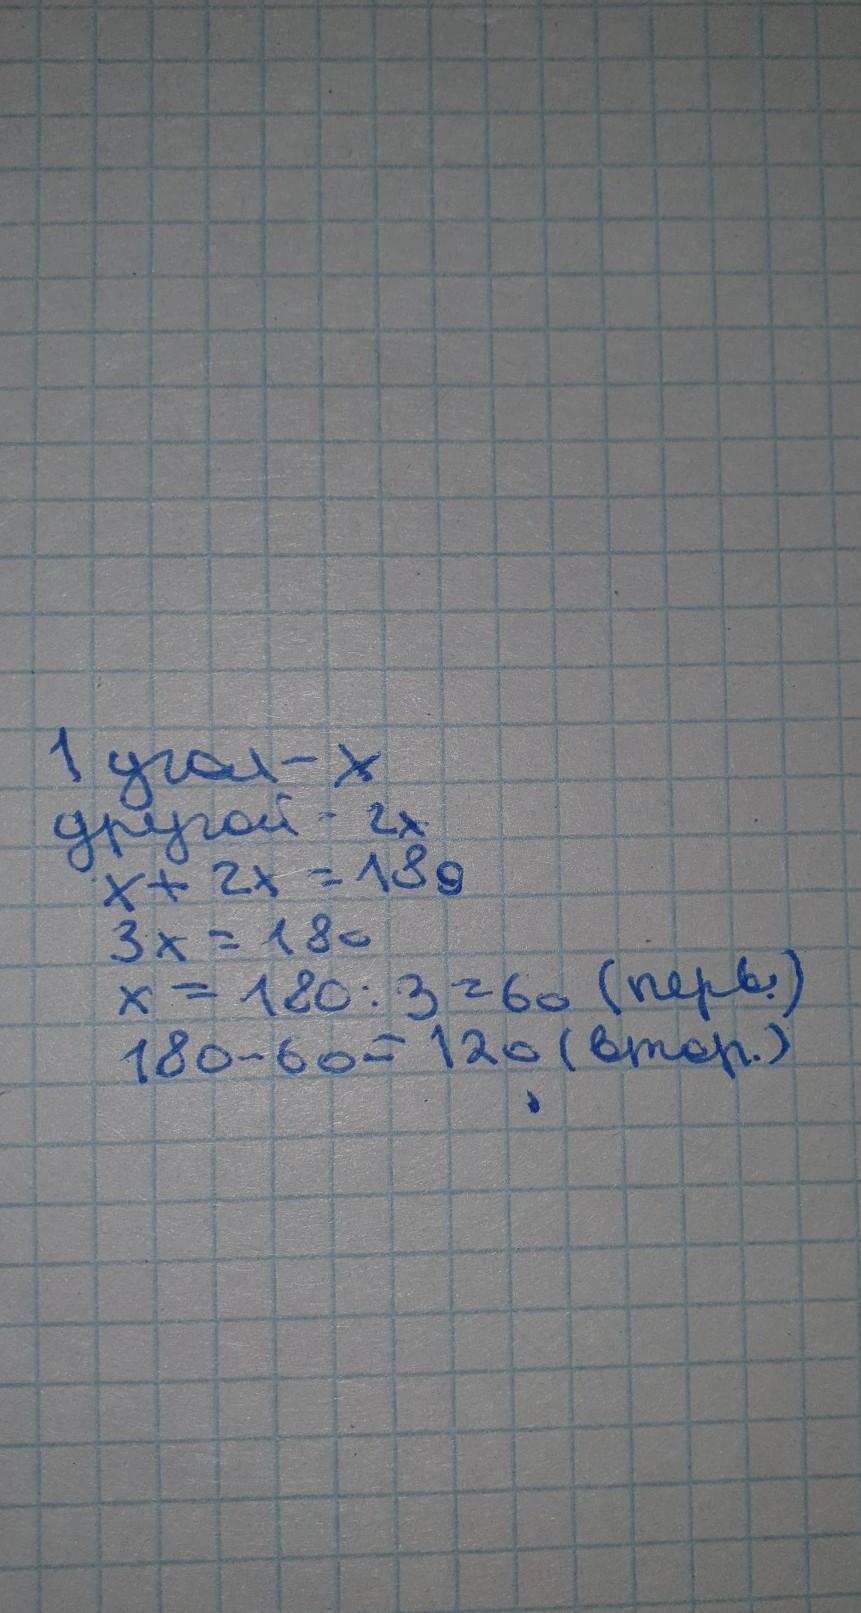 1 угол - x
другой - 2x
x + 2x = 180
3x = 180
x = 180 : 3 = 60 (перв.)
180 - 60 = 120 (втор.)